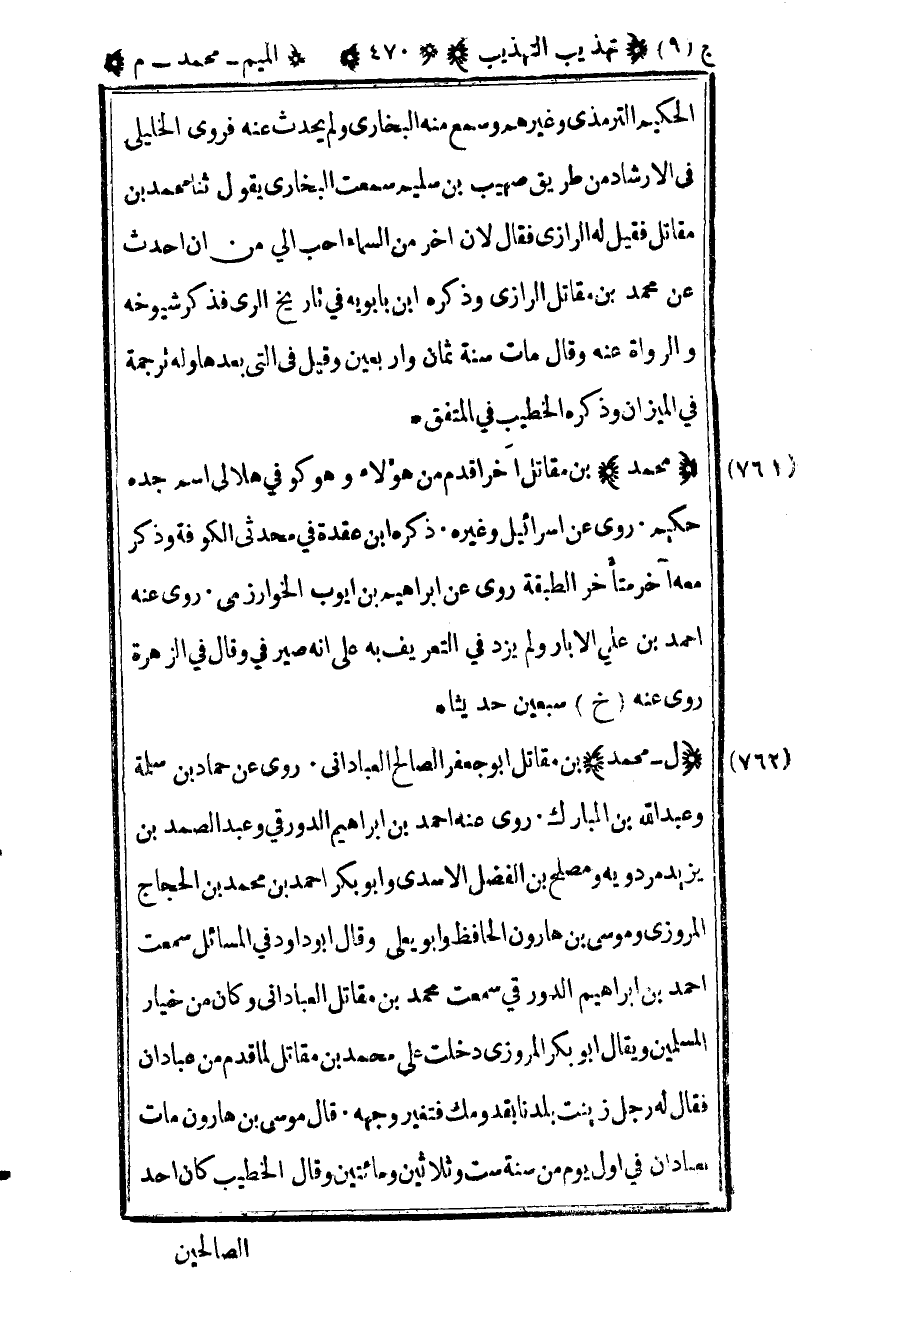 ج (٩) ﴿ تهذيب التهذيب ﴾ * ٤٧٠ ﴿ الميم - محمد - م ﴾
الحكيم الترمذى وغيرهم وسمع منه البخارى ولم يحدث عنه فروى الخليلى
فى الارشاد من طريق صهيب بن سليم سمعت البخارى يقول ثنا محمد بن
مقاتل فقيل له الرازى فقال لان اخر من السماء احب الي من ان احدث
عن محمد بن مقاتل الرازى وذكره ابن بابويه في تاريخ الرى فذكر شيوخه
والرواة عنه وقال مات سنة ثمان واربعين وقيل فى التى بعدها وله ترجمة
في الميزان وذكره الخطيب في المتفق ٠
﴿ محمد ﴾ بن مقاتل آخر اقدم من هؤلاء وهو كوفي هلالى اسم جده (٧٦١)
حكيم ٠ روى عن اسرائيل وغيره ٠ ذكره ابن عقدة في محدثى الكوفة وذكر
معه آخر متأخر الطبقة روى عن ابراهيم بن ايوب الخوارزمى ٠ روى عنه
احمد بن علي الابار ولم يزد في التعريف به على انه صيرفي وقال في الزهرة
روى عنه ( خ ) سبعين حديثا ٠
﴿ ل - محمد ﴾ بن مقاتل ابو جعفر الصالح العبادانى ٠ روى عن حماد بن سلمة (٧٦٢)
وعبدالله بن المبارك ٠ روى عنه احمد بن ابراهيم الدورقي وعبد الصمد بن
يزيد مردويه ومصلح بن الفضل الاسدى وابو بكر احمد بن محمد بن الحجاج
المروزى وموسى بن هارون الحافظ وابو يعلى وقال ابو داود في المسائل سمعت
احمد بن ابراهيم الدورقي سمعت محمد بن مقاتل العبادانى وكان من خيار
المسلمين ويقال ابو بكر المروزى دخلت على محمد بن مقاتل لما قدم من عبادان
فقال له رجل زينت بلدنا بقدومك فتغير وجهه ٠ قال موسى بن هارون مات
بعبادان في اول يوم من سنة ست وثلاثين ومائتين وقال الخطيب كان احد
الصالحين